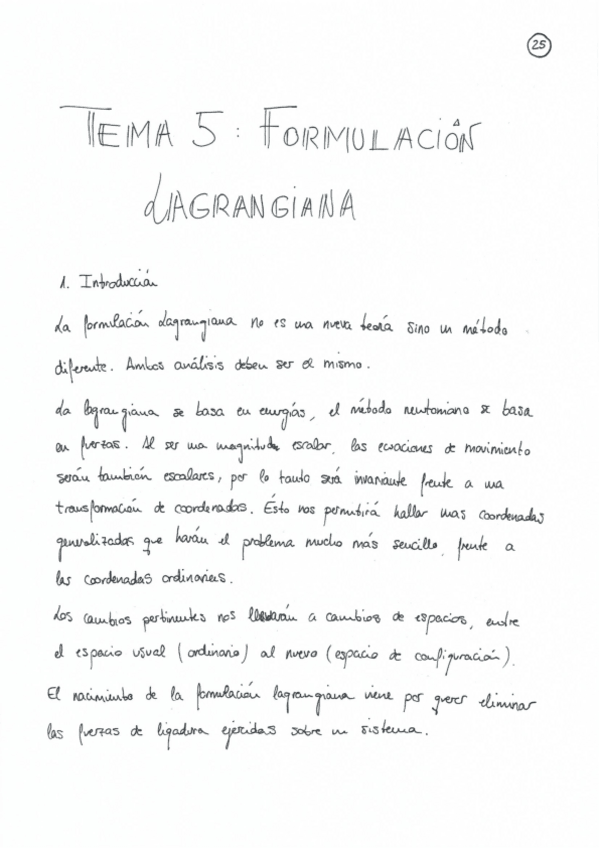 25
TEMA 5: FORMULACIÓN
LAGRANGIANA
1. Introducción
La formulación Lagrangiana no es una nueva teoría sino un método
diferente. Ambos análisis deben ser el mismo.
La lagrangiana se basa en energías, el método newtoniano se basa
en fuerzas. Al ser una magnitud escalar, las ecuaciones de movimiento
serán también escalares, por lo tanto será invariante frente a una
transformación de coordenadas. Ésto nos permitirá hallar unas coordenadas
generalizadas que harán el problema mucho más sencillo, frente a
las coordenadas ordinarias.
Los cambios pertinentes nos llevarán a cambios de espacios, entre
el espacio usual (ordinario) al nuevo (espacio de configuración).
El nacimiento de la formulación lagrangiana viene por querer eliminar
las fuerzas de ligadura ejercidas sobre un sistema.